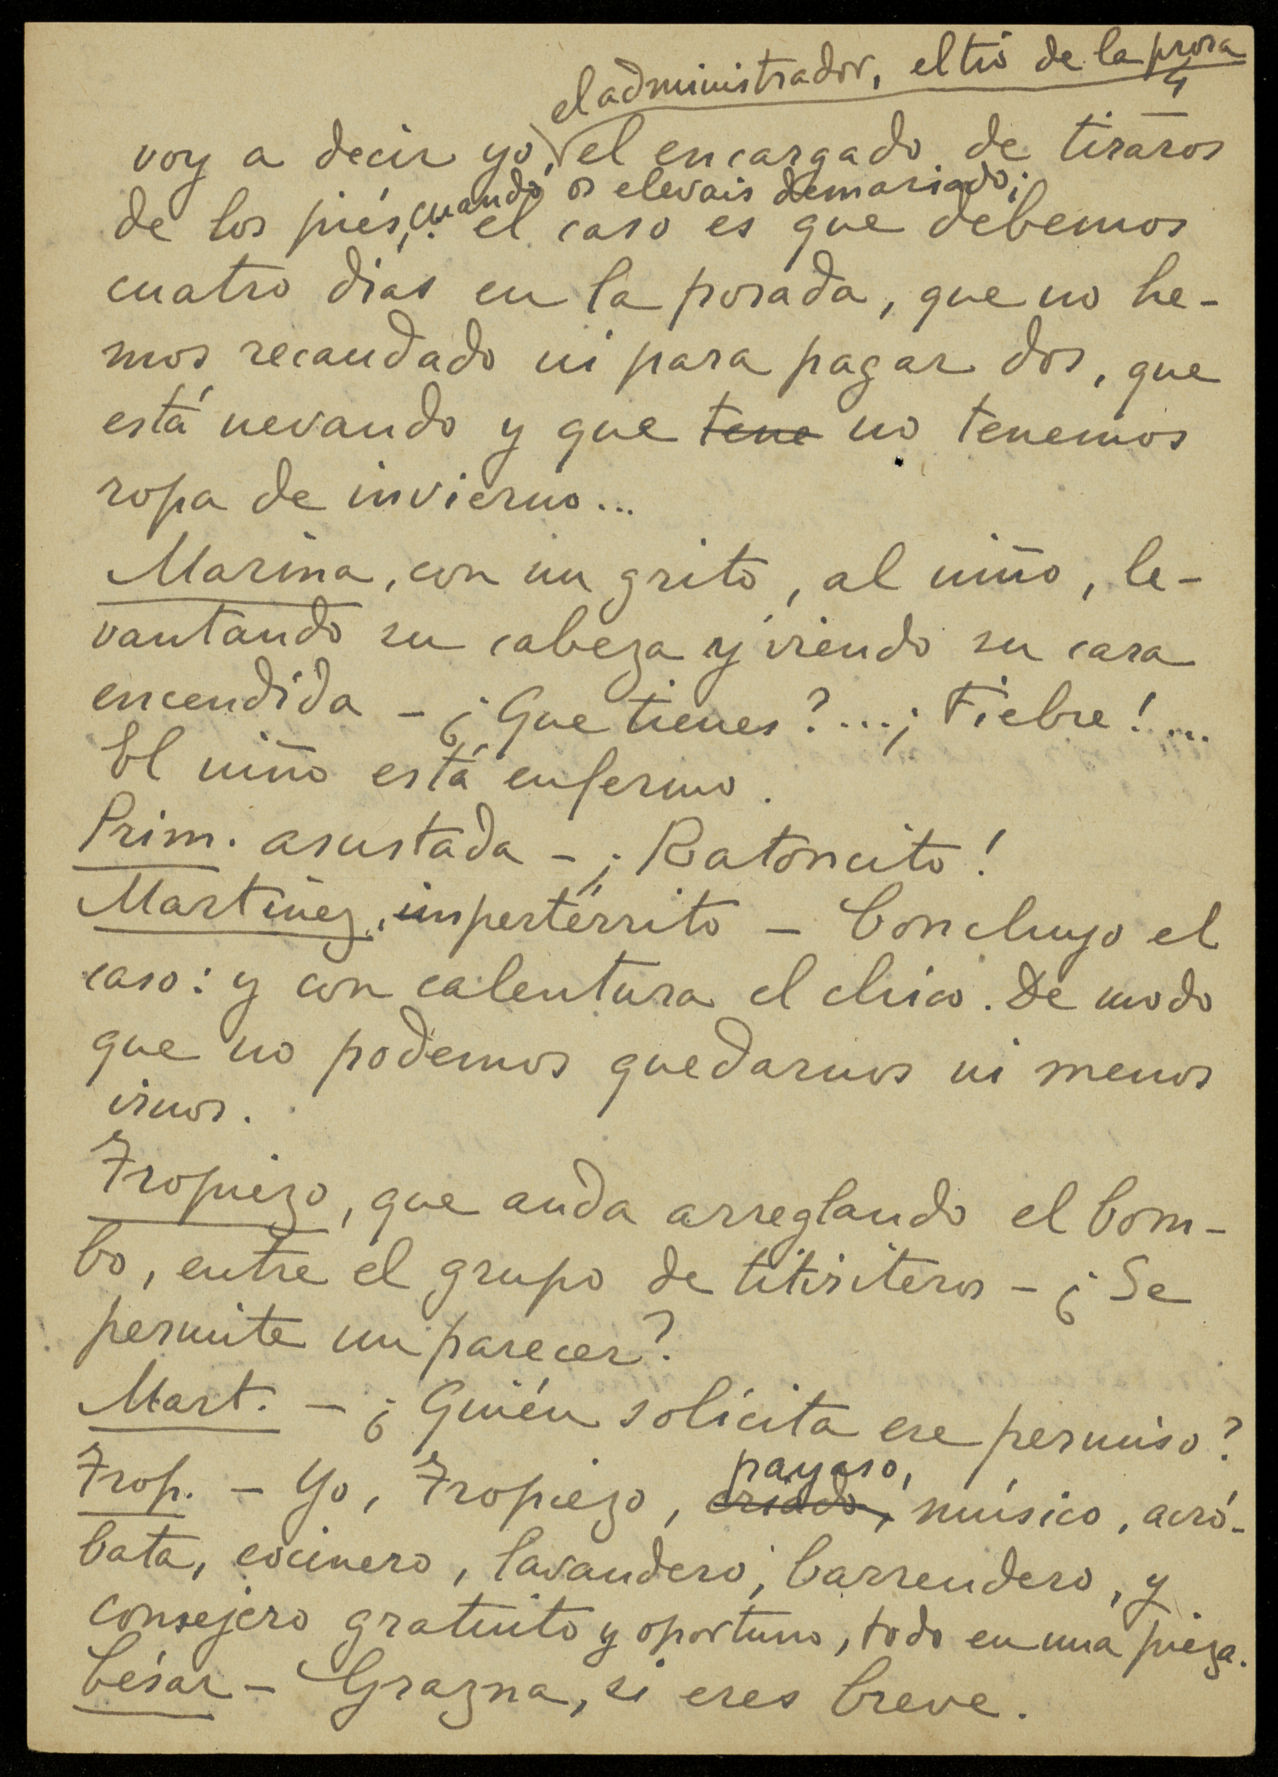 el administrador, el tío de la prosa
4
voy a decir yo, el encargado de tiraros
cuando os elevais demasiado;
de los piés, el caso es que debemos
cuatro dias en la posada, que no he-
mos recaudado ni para pagar dos, que
está nevando y que tene no tenemos
ropa de invierno...
Marina, con un grito, al niño, le-
vantando su cabeza y viendo su cara
encendida - ¿Que tienes?...¡Fiebre!...
El niño está enfermo.
Prim. asustada - ¡Ratoncito!
Martinez, impertérrito - Concluyo el
caso: y con calentura el chico. De modo
que no podemos quedarnos ni menos
irnos.
Tropiezo, que anda arreglando el bom-
bo, entre el grupo de titiriteros - ¿Se
permite un parecer?
Mart. - ¿Quién solícita ese permiso?
Trop. - Yo, Tropiezo, criado, payaso, músico, acró-
bata, cocinero, lavandero, barrendero, y
consejero gratuito y oportuno, todo en una pieza.
César - Grazna, si eres breve.